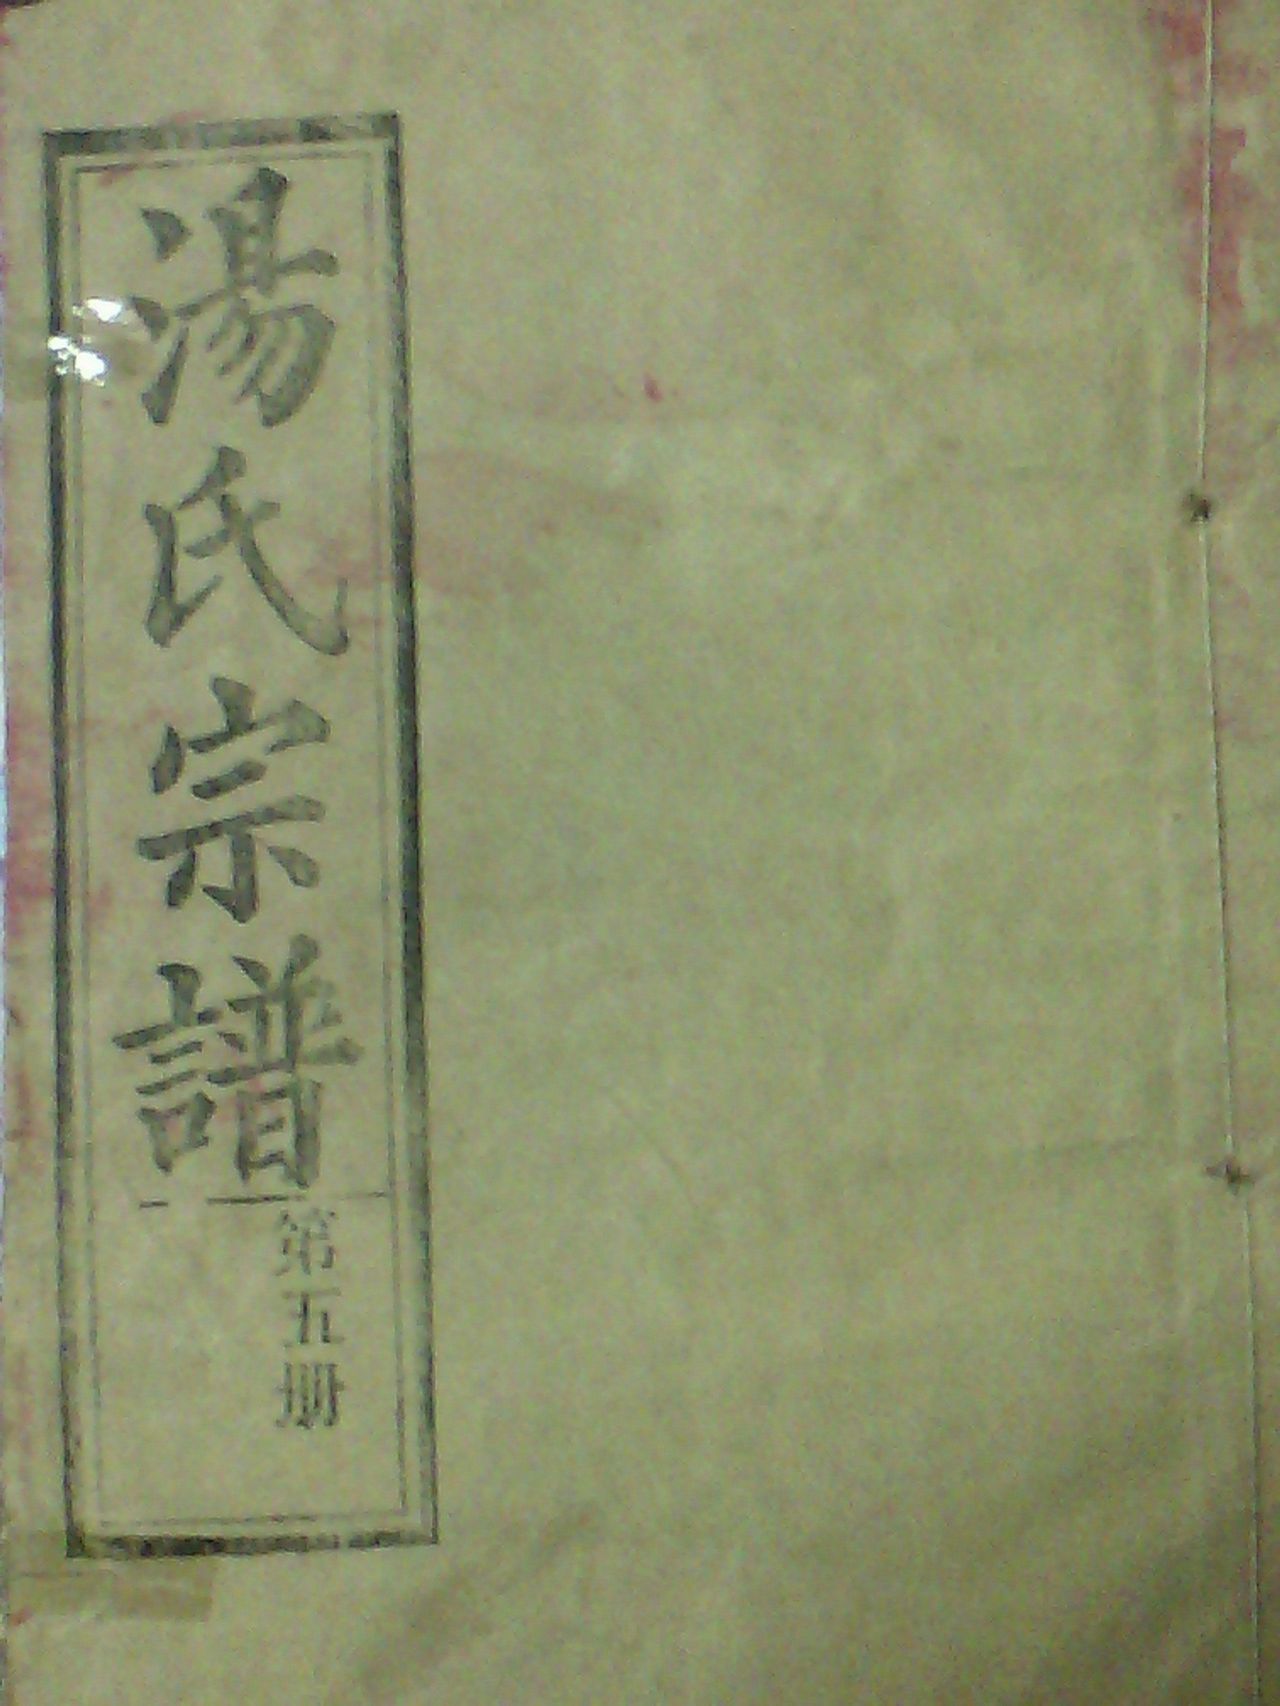 湯氏宗譜
第五册